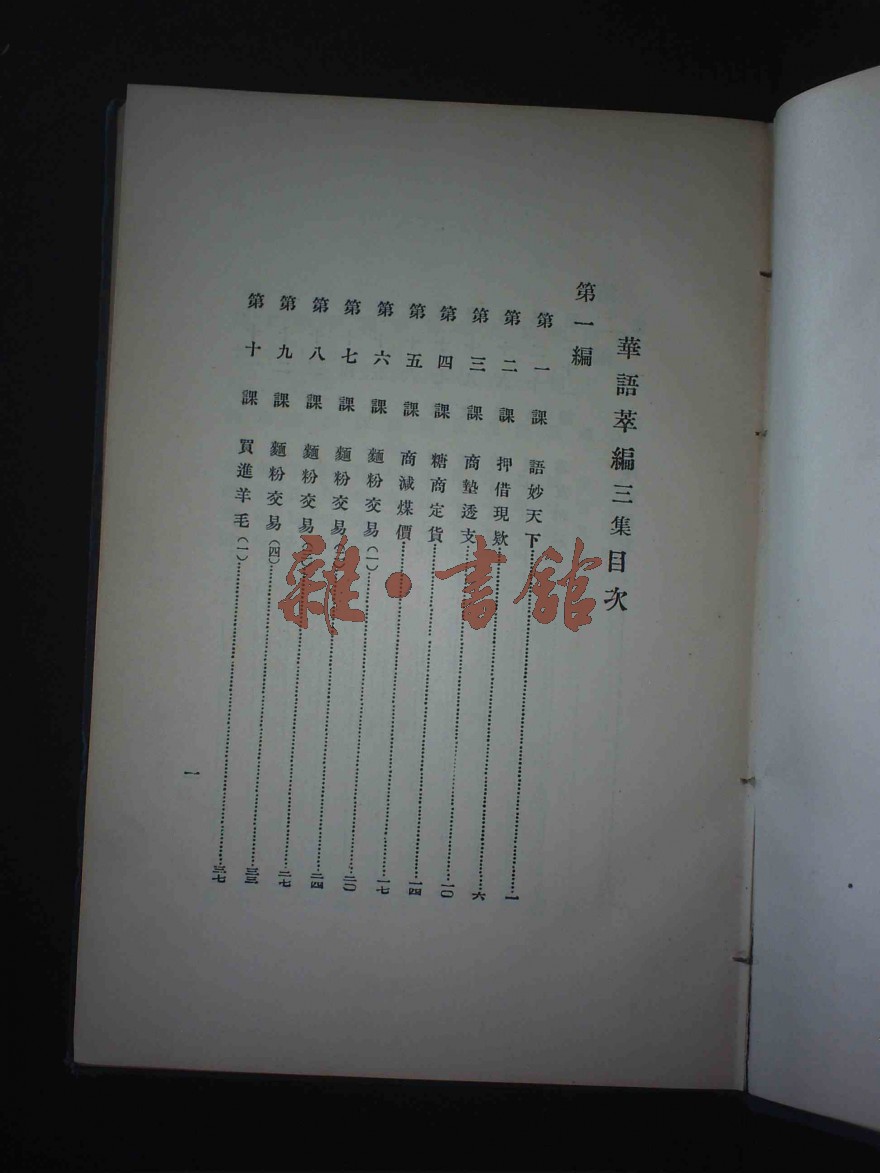 華語萃編三集目次
第一編
第一課 語妙天下……一
第二課 押借現款……六
第三課 商墊透支……一〇
第四課 糖商定貨……一四
第五課 商減煤價……一七
第六課 麵粉交易(一)……二〇
第七課 麵粉交易……二四
第八課 麵粉交易……二七
第九課 麵粉交易(四)……三三
第十課 買進羊毛(一)……三七
一
雜·書館